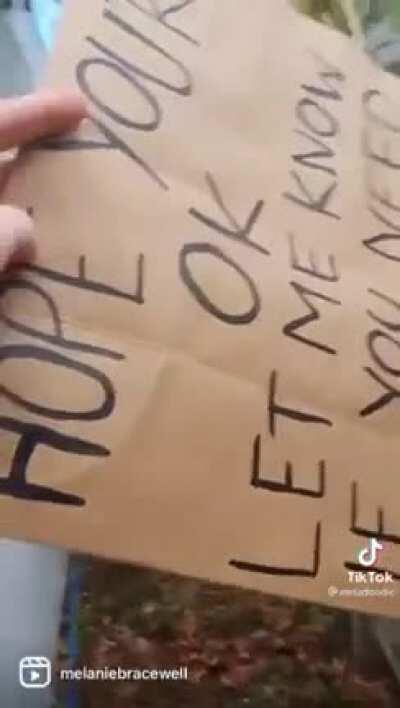 HOPE YOUR
OK
LET ME KNOW
IF YOU NEED
TikTok
melaniebracewell